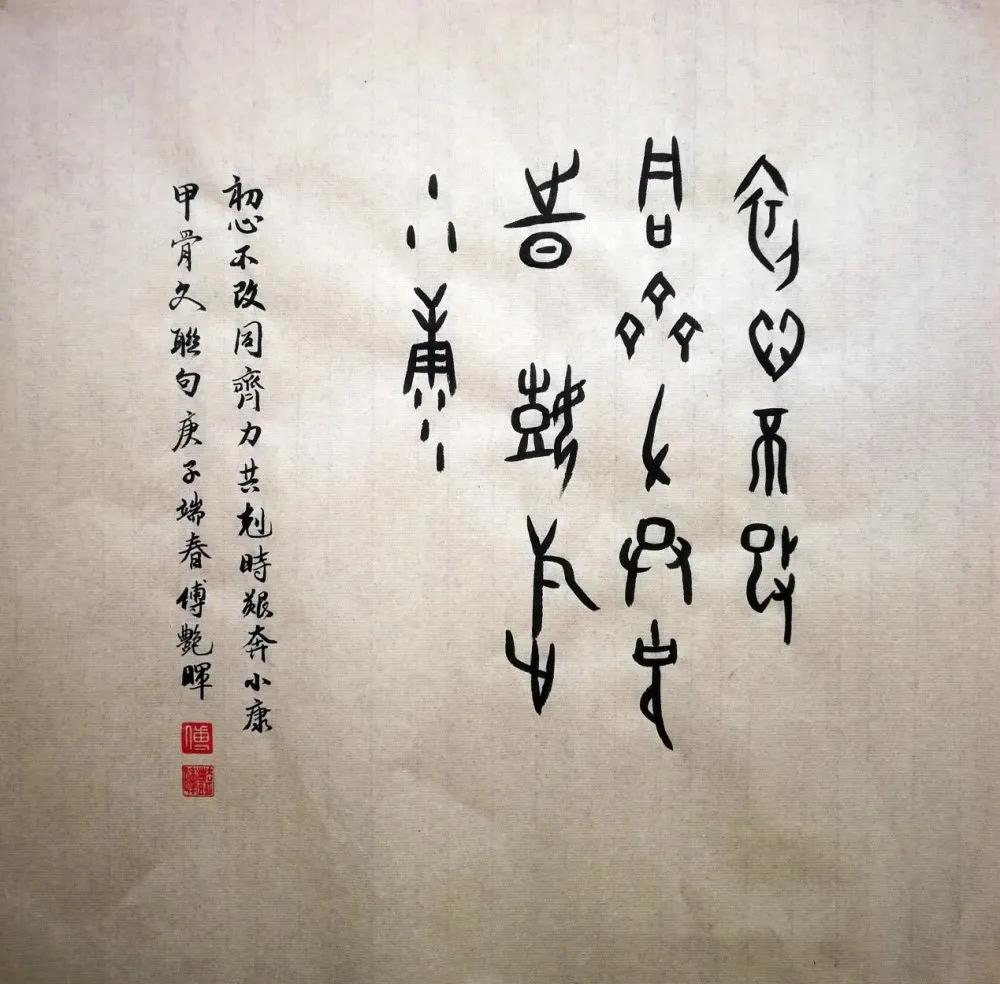 初心不改
同齊力共克
時艱奔
小康
初心不改同齊力共剋時艱奔小康
甲骨文聯句庚子端春傅艷暉
傅